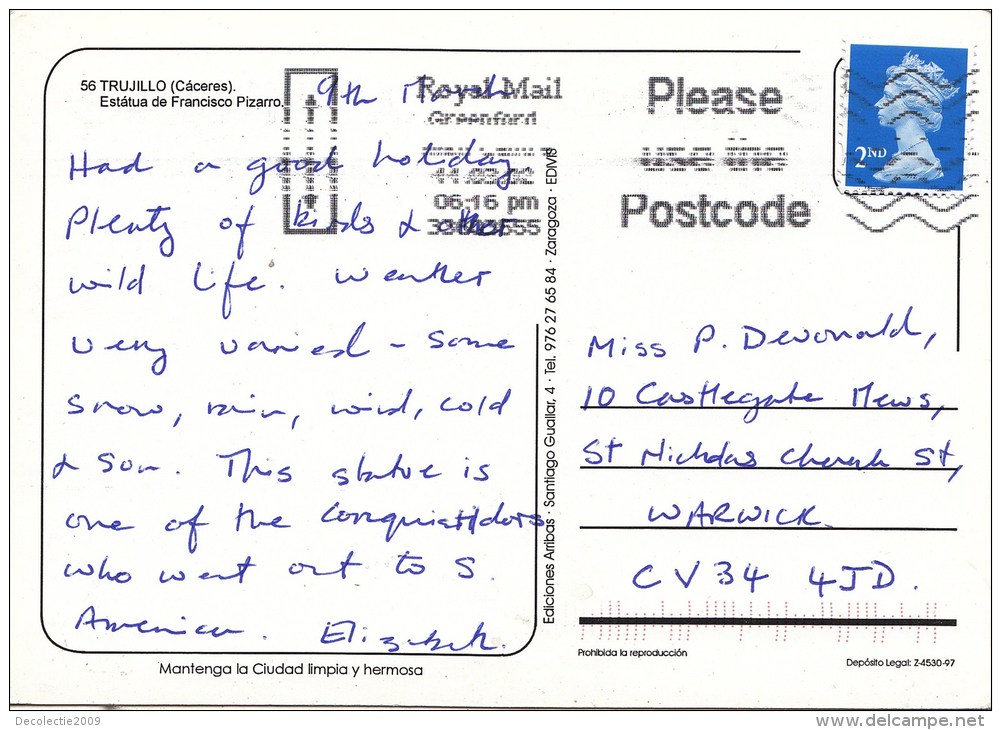 56 TRUJILLO (Cáceres).
Estátua de Francisco Pizarro.
9th March
Had a good holiday.
Plenty of birds & other
wild life. Weather
very varied – some
snow, rain, wind, cold
& sun. This statue is
one of the conquistidors
who went out to S.
America. Elizabeth.
Mantenga la Ciudad limpia y hermosa
Ediciones Arribas · Santiago Guallar, 4 · Tel. 976 27 65 84 · Zaragoza · EDIVIS
Royal Mail
Greenford
06.16 pm
Please
Postcode
2ND
Miss P. Devonald,
10 Castlegate Mews,
St Nicholas Church St,
WARWICK.
CV34 4JD.
Prohibida la reproducción
Depósito Legal: Z-4530-97
Decolectie2009
www.delcampe.net